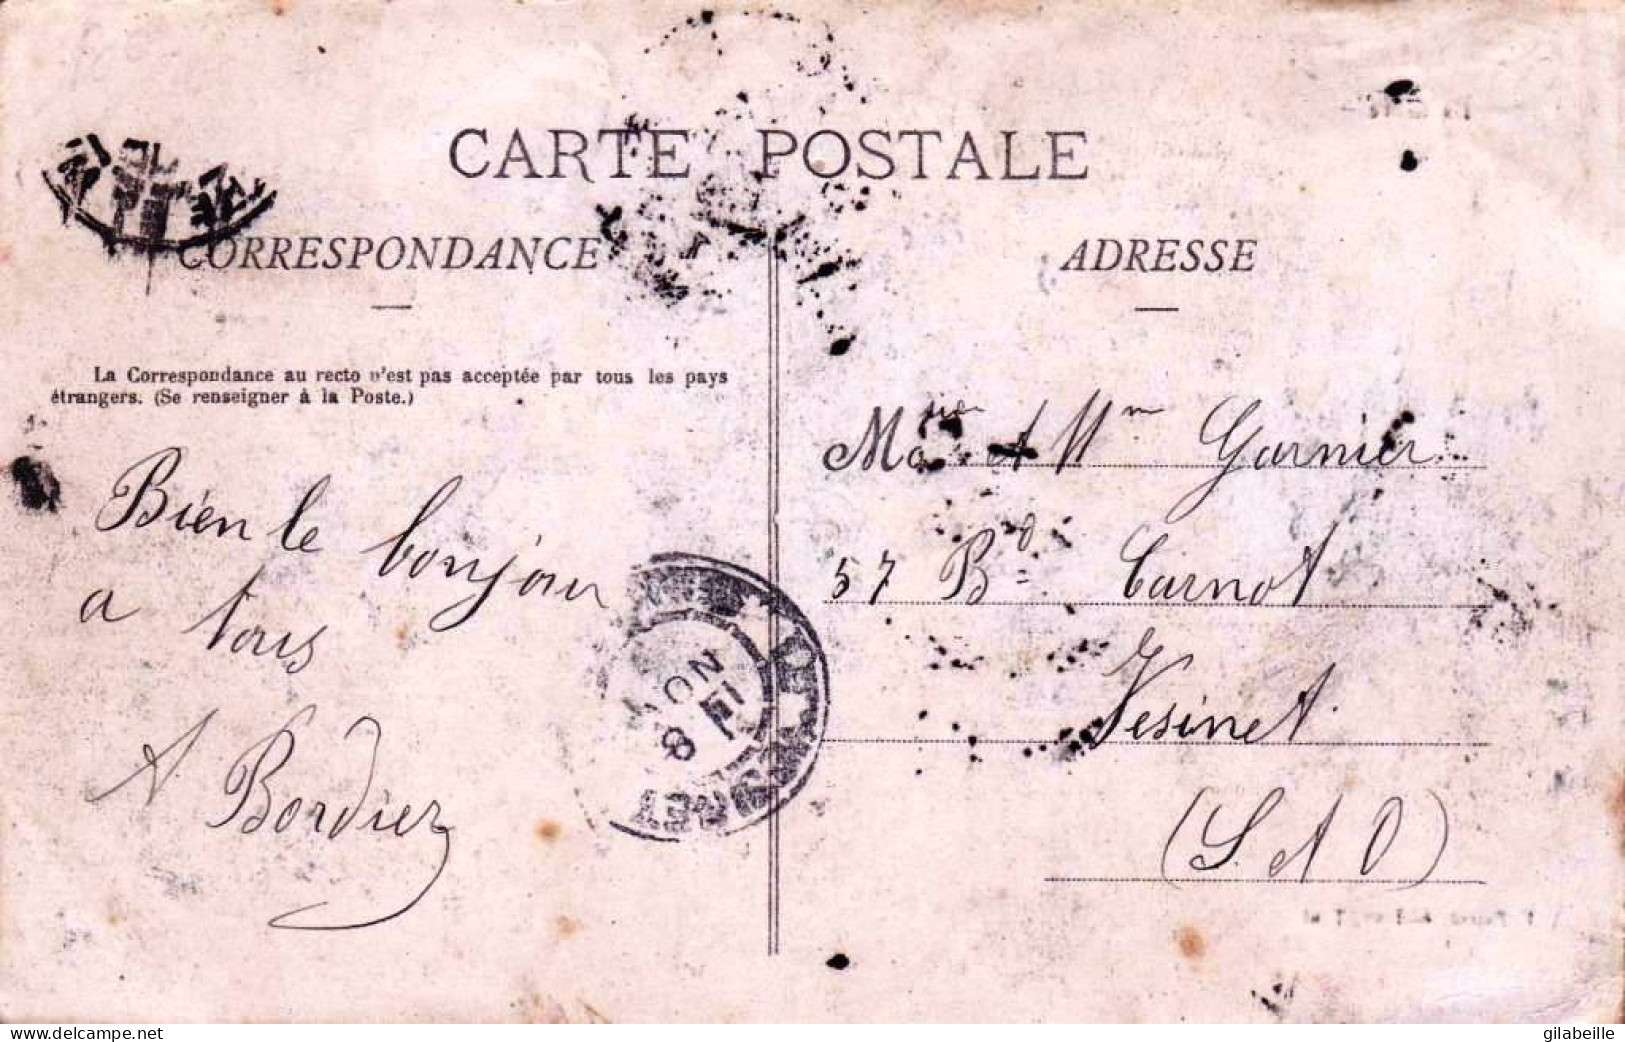 CARTE POSTALE
CORRESPONDANCE
La Correspondance au recto n'est pas acceptée par tous les pays
étrangers. (Se renseigner à la Poste.)
Bien le bonjour
a tous
A Bordier
ADRESSE
Mme Garnier
57 Bd Carnot
Vesinet
(S. et O)
www.delcampe.net
gilabeille